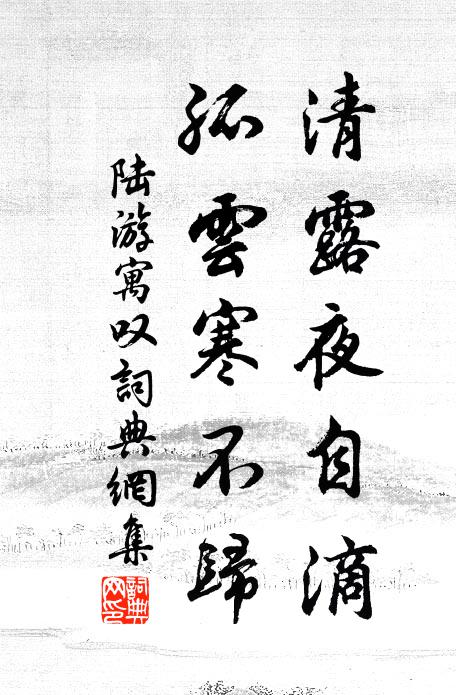 清露夜自滴
孤雲寒不歸
陆游寓叹詞典網集
詞典